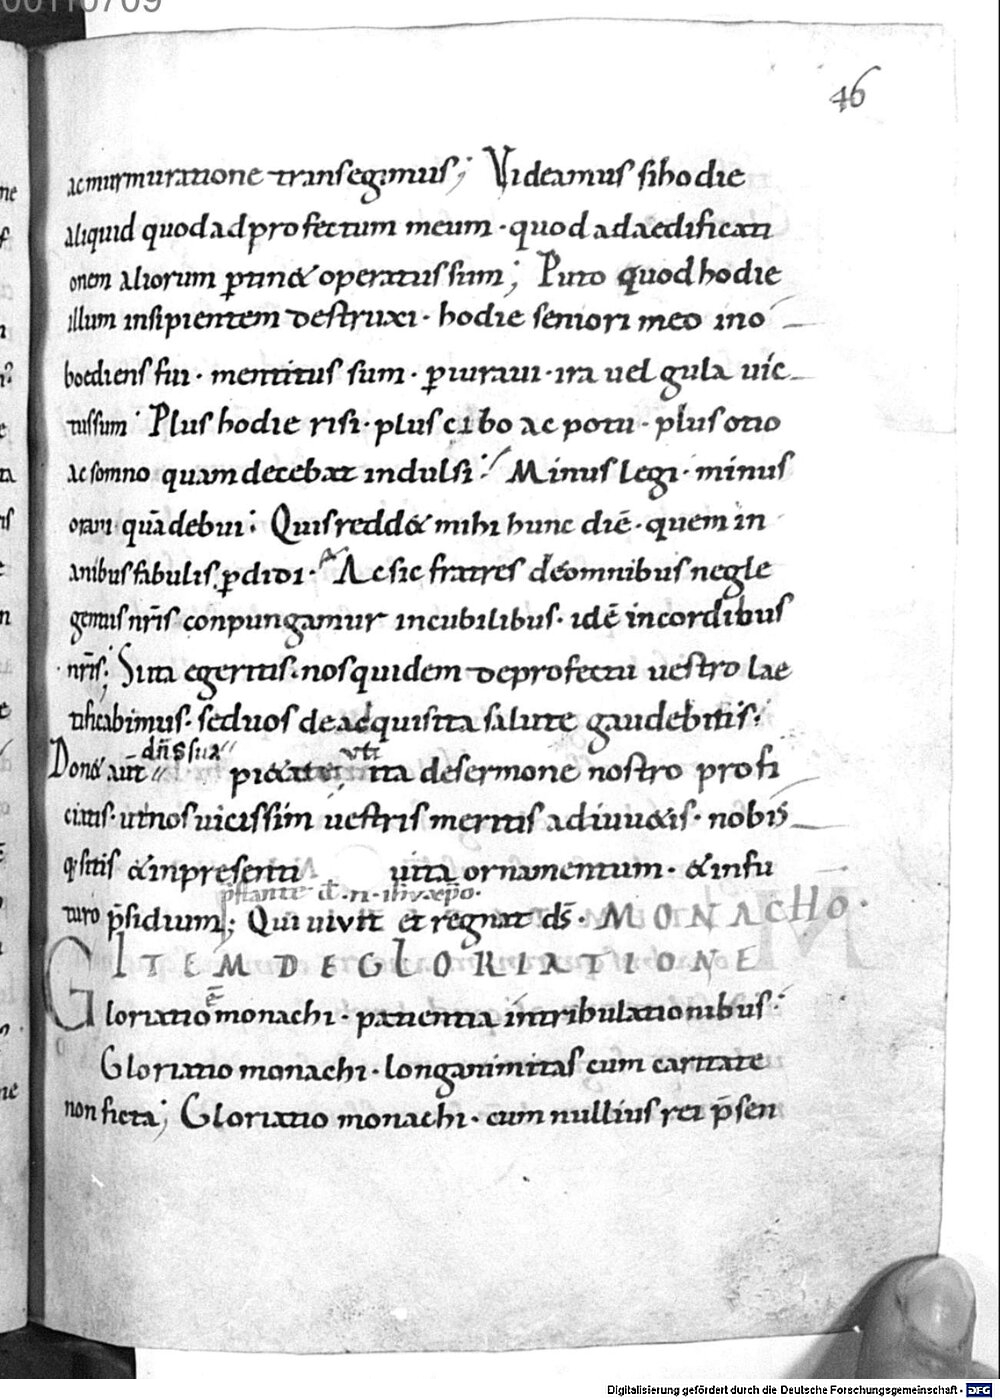 46
ac murmuratione transegimus; Videamus si hodie
aliquid quod ad profectum meum · quod ad aedificati
onem aliorum ꝑtin& operatus sum; Puto quod hodie
illum insipientem destruxi · hodie seniori meo ino
boediens fui · mentitus sum · ꝑiuraui · ira uel gula uic
tus sum · Plus hodie risi · plus cibo ac potu · plus otio
ac somno quam decebat indulsi; Minus legi · minus
oraui quā debui; Quis redd& mihi hunc diē · quem in
anibus fabulis ꝑdidi · Ac sic fratres de omnibus negle
gentiis nr̄is conpungamur in cubilibus · id ē in cordibus
nr̄is; Si ita egeritis · nos quidem de profectu uestro lae
tificabimus · sed uos de adquisita salute gaudebitis;
dn̄s sua uti
Don& aūt pi&ate ita de sermone nostro profi
ciatis · ut nos uicissim uestris meritis adiuu&is · nobis
q̄ sitis & in presenti uita ornamentum · & in fu
p̄stante d̄. n. ihu xp̄o.
turo p̄sidium; Qui uiuit et regnat ds̄ · MONACHO·
ITEM DE GLORIATIONE
Gloriatio ē monachi · patientia in tribulationibus;
Gloriatio monachi · longanimitas cum caritate
non ficta; Gloriatio monachi · cum nullius rei p̄sen
Digitalisierung gefördert durch die Deutsche Forschungsgemeinschaft - DFG